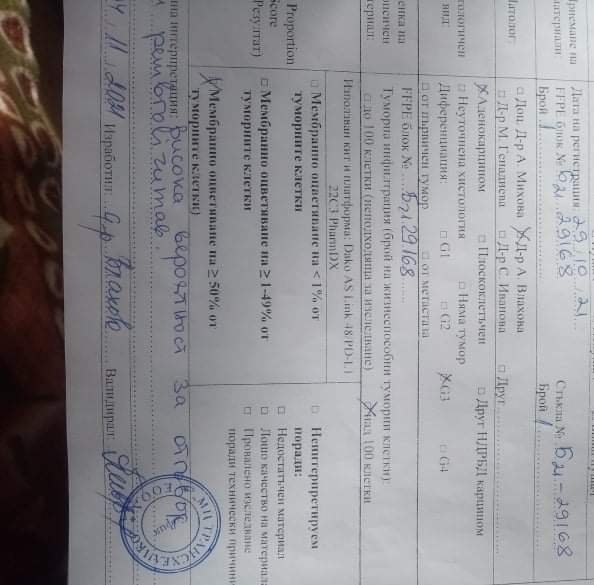 Приемане на материали:
Дата на регистрация 29.10.21...
FFPE блок № Б21.29168 Стъкла №. Б21-29168
Брой 1 Брой 1
Патолог:
□ Доц. Д-р А Михова ☒ Д-р А Влахова
□ Д-р М. Генадиева □ Д-р С. Иванова □ Друг
вид:
☒ Аденокарцином □ Плоскоклетъчен □ Друг НДРБД карцином
□ Неуточнена хистология □ Няма тумор
Диференциация: □ G1 □ G2 ☒ G3 □ G4
□ от първичен тумор □ от метастаза
FFPE блок № .... Б21 29168
Туморна инфилтрация (брой на жизнеспособни туморни клетки):
□ до 100 клетки (неподходяща за изследване) ☒ над 100 клетки
Използван кит и платформа: Dako AS Link 48/PD-L1
22C3 PharmDX
Proportion
Score
(Резултат)
□ Мембранно оцветяване на < 1% от
туморните клетки
□ Мембранно оцветяване на ≥ 1-49% от
туморните клетки
☒ Мембранно оцветяване на ≥ 50% от
туморните клетки)
□ Неинтерпретируем
поради:
□ Недостатъчен материал
□ Лошо качество на материал
□ Провалено изследване
поради технически причини
интерпретация: висока вероятност за отговор
11.2021 Изработил: Д-р Влахова Валидирал: